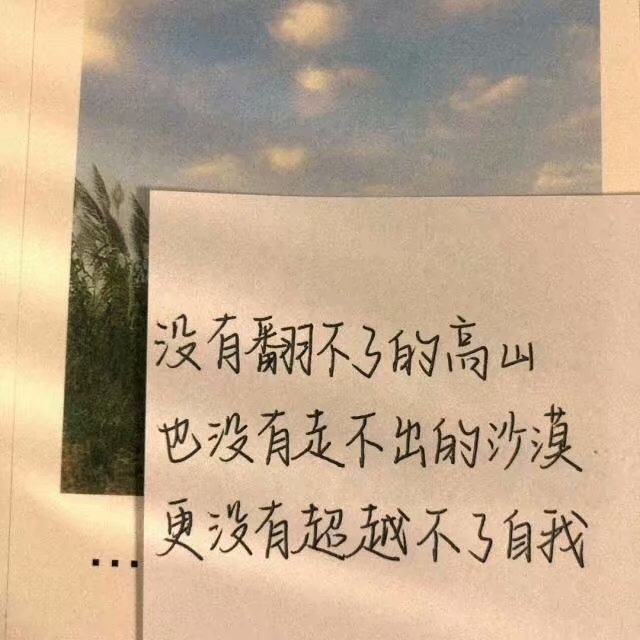 没有翻不了的高山
也没有走不出的沙漠
更没有超越不了自我
...